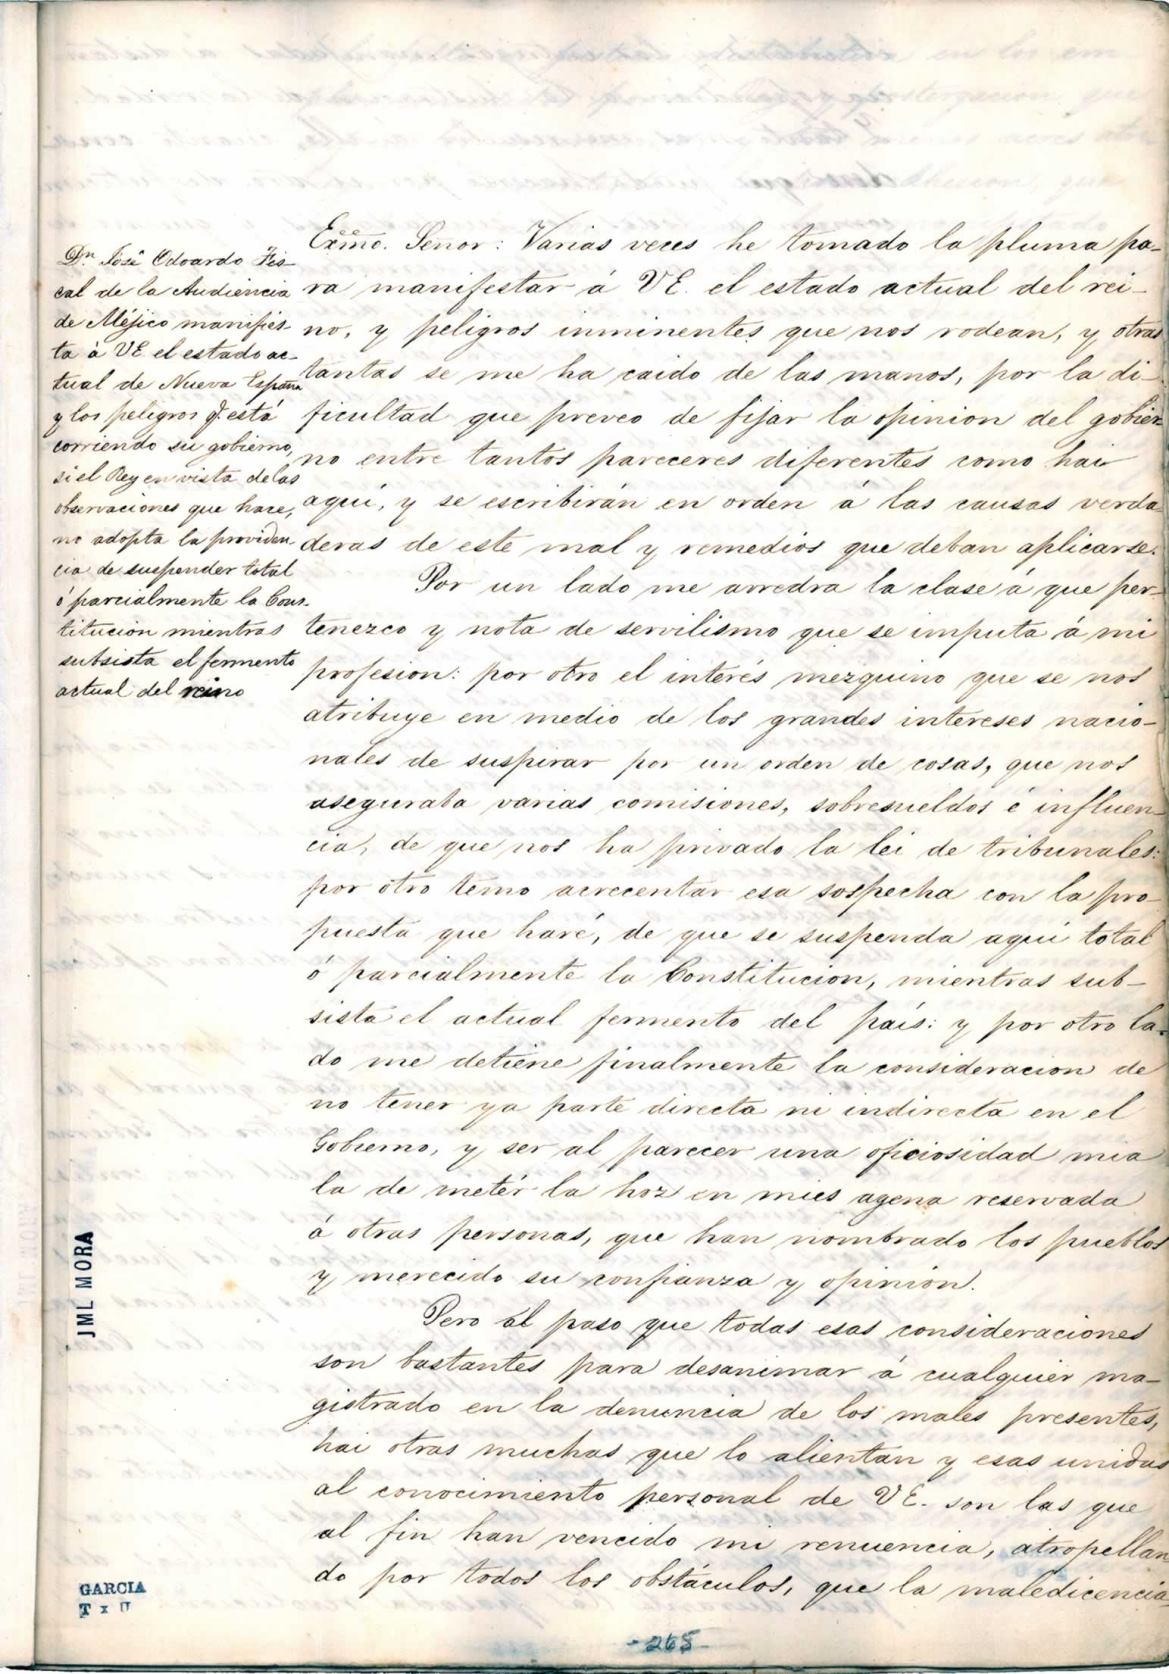 Dn. José Odoardo Fis-
cal de la Audiencia
de Méjico manifies-
ta á VE el estado ac-
tual de Nueva España
y los peligros q. está
corriendo su gobierno,
si el Rey en vista de las
observaciones que hace,
no adopta la providen-
cia de suspender total
ó parcialmente la Cons-
titucion mientras
subsista el fermento
actual del reino
Exmo. Señor: Varias veces he tomado la pluma pa-
ra manifestar á VE. el estado actual del rei-
no, y peligros inminentes que nos rodean, y otras
tantas se me ha caido de las manos, por la di-
ficultad que preveo de fijar la opinion del gobier-
no entre tantos pareceres diferentes como hai
aquí, y se escribirán en orden á las causas verda-
deras de este mal y remedios que deban aplicarse.
Por un lado me arredra la clase á que per-
tenezco y nota de servilismo que se imputa á mi
profesion: por otro el interés mezquino que se nos
atribuye en medio de los grandes intereses nacio-
nales de suspirar por un orden de cosas, que nos
aseguraba varias comisiones, sobresueldos é influen-
cia, de que nos ha privado la lei de tribunales:
por otro temo acrecentar esa sospecha con la pro-
puesta que haré, de que se suspenda aquí total
ó parcialmente la Constitucion, mientras sub-
sista el actual fermento del país: y por otro la-
do me detiene finalmente la consideracion de
no tener ya parte directa ni indirecta en el
Gobierno, y ser al parecer una oficiosidad mia
la de metér la hoz en mies agena reservada
á otras personas, que han nombrado los pueblos
y merecido su confianza y opinion.
Pero al paso que todas esas consideraciones
son bastantes para desanimar á cualquier ma-
gistrado en la denuncia de los males presentes,
hai otras muchas que lo alientan y esas unidas
al conocimiento personal de VE. son las que
al fin han vencido mi renuencia, atropellan
do por todos los obstáculos, que la maledicencia
JML MORA
GARCIA
T x U
-265-